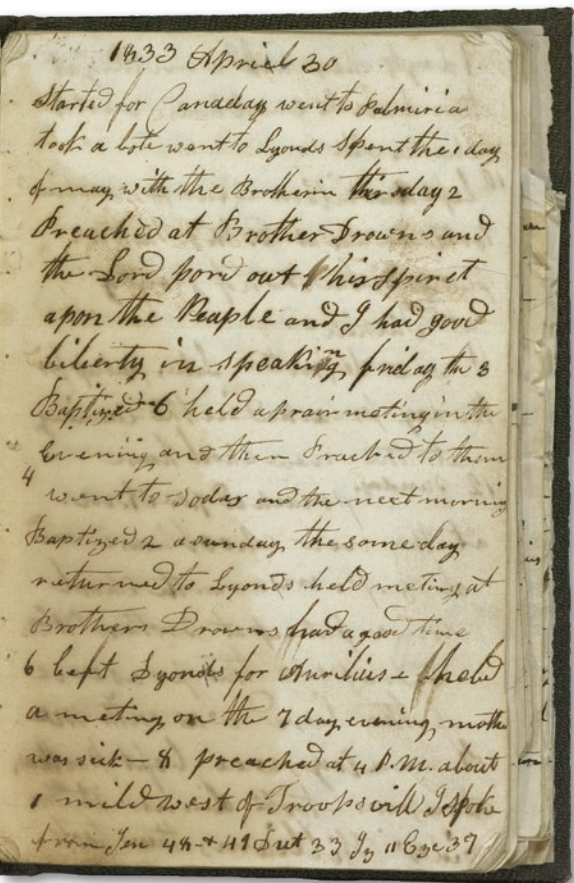 1833 Apriel 30
Started for Canaday went to Palmiria
took a bote went to Lyonds Spent the 1 day
of may with the Brotherin thirsday 2
Preached at Brother Drowns and
the Lord pord out his spirit
apon the Peaple and I had good
liberty in speaking friday the 3
Baptized 6 held a prair meting in the
Evening and then Preached to them
4 went to Sodas and the next morning
Baptized 2 a sunday the same day
returned to Lyonds held meting at
Brothers Drowns had a good time
6 left Lyonds for Aurilius & held
a meting on the 7 day evening mothe
was sick – 8 preached at 4 P.M. about
1 mild west of Troopsvill I spoke
from Jen 48 & 49 Dut 33 Iz 11 Eze 37